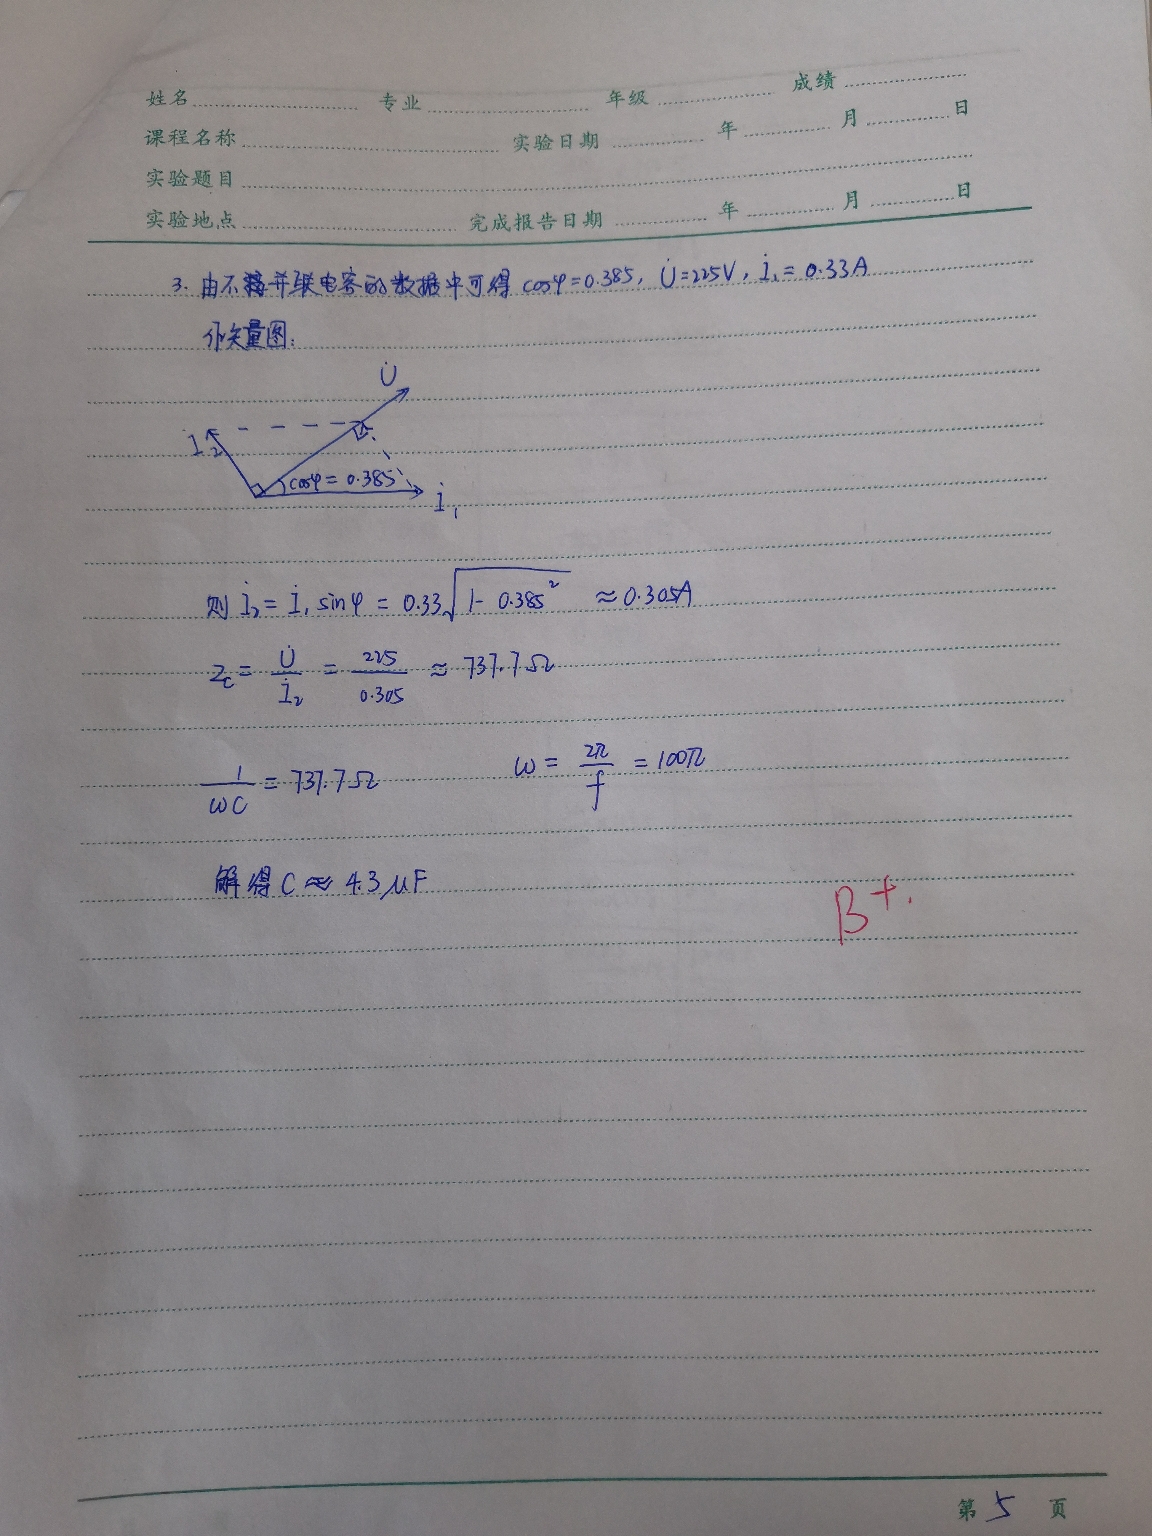 姓名 专业 年级 成绩
课程名称 实验日期 年 月 日
实验题目
实验地点 完成报告日期 年 月 日
3. 由不接并联电容的数据中可得 cosφ=0.385, U̇=225V, İ₁=0.33A
作矢量图:
U̇
İ₂
cosφ=0.385
İ₁
则 İ₂=İ₁ sinφ = 0.33√(1-0.385²) ≈0.305A
Zc = U̇/İ₂ = 225/0.305 ≈ 737.7Ω
1/ωC = 737.7Ω ω = 2π/f = 100π
解得 C ≈ 4.3 μF
B+.
第 5 页